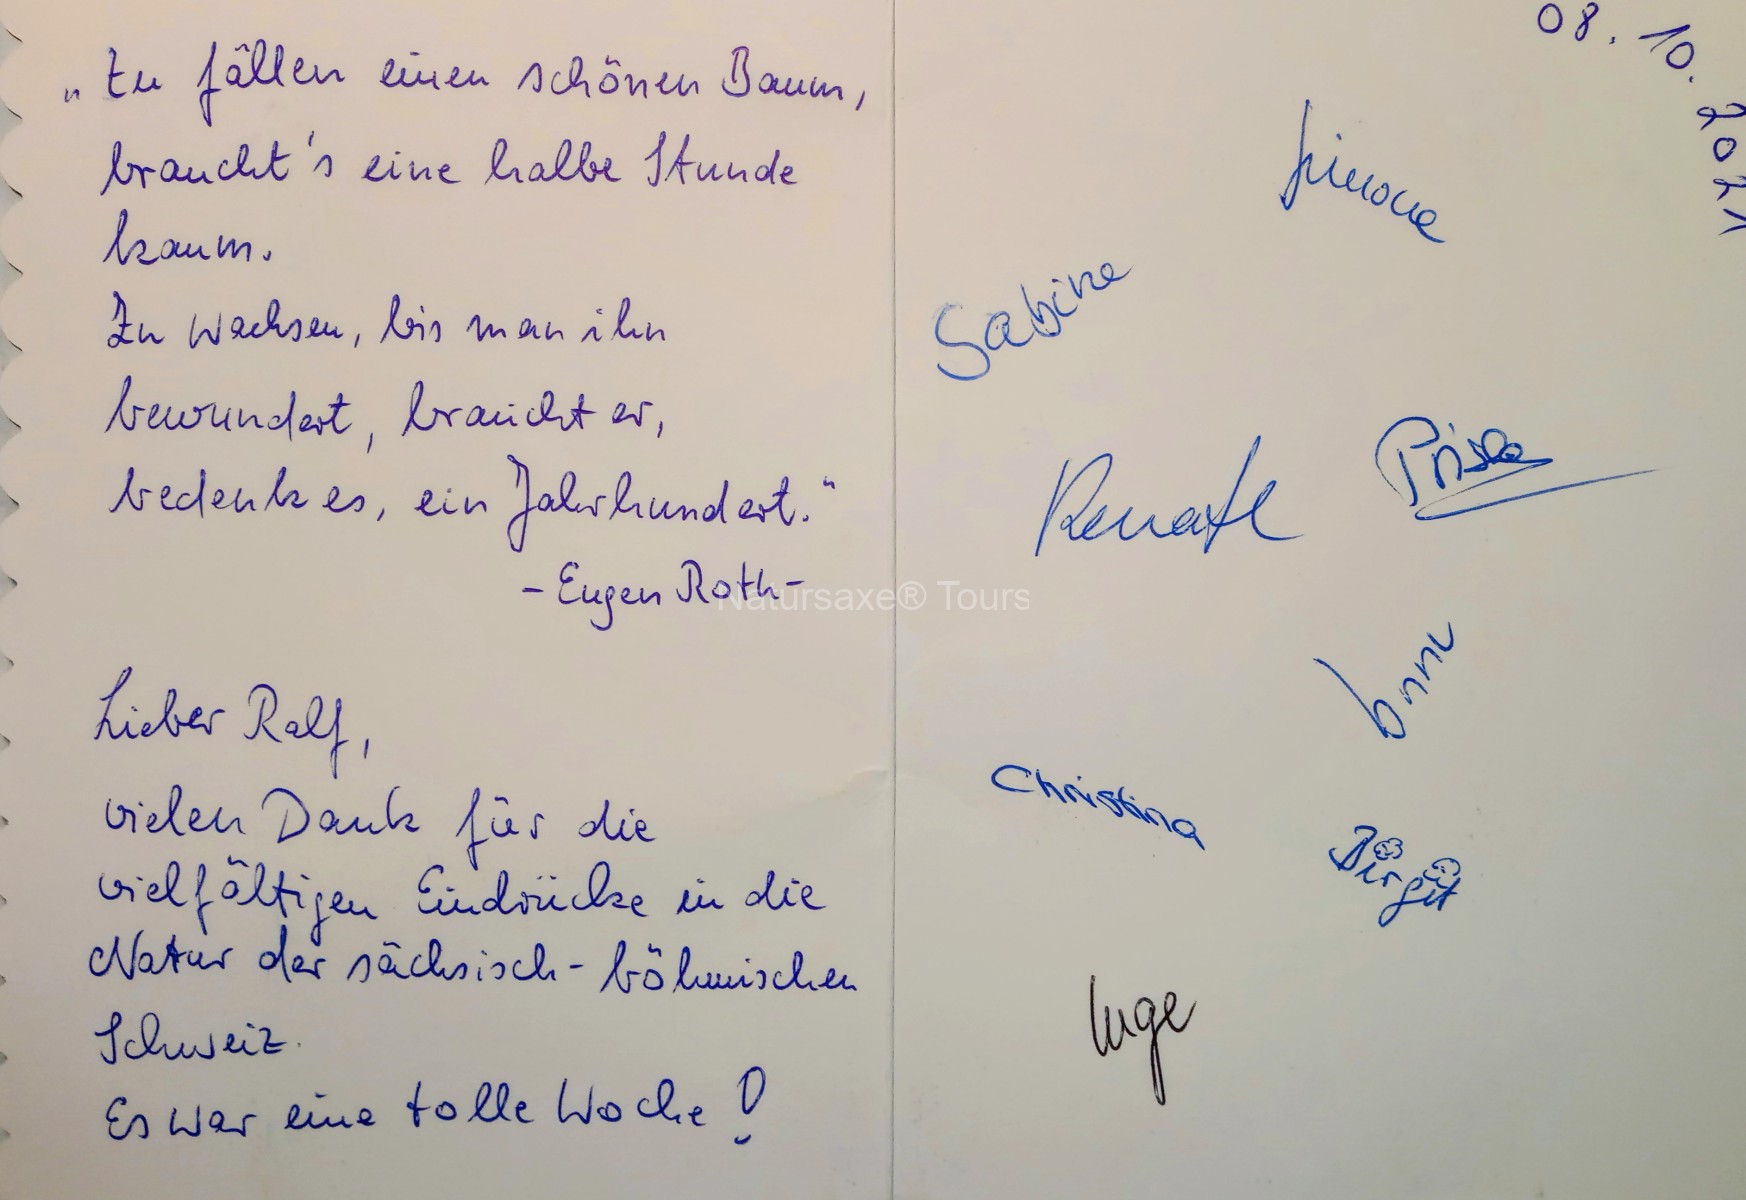 „Zu fällen einen schönen Baum,
braucht's eine halbe Stunde
kaum.
Zu wachsen, bis man ihn
bewundert, braucht er,
bedenk es, ein Jahrhundert."
-Eugen Roth-
Lieber Ralf,
vielen Dank für die
vielfältigen Eindrücke in die
Natur der sächsisch-böhmischen
Schweiz.
Es war eine tolle Woche!
08.10.2021
Simone
Sabine
Renate
Christina
Birgit
Inge
Natursaxe® Tours